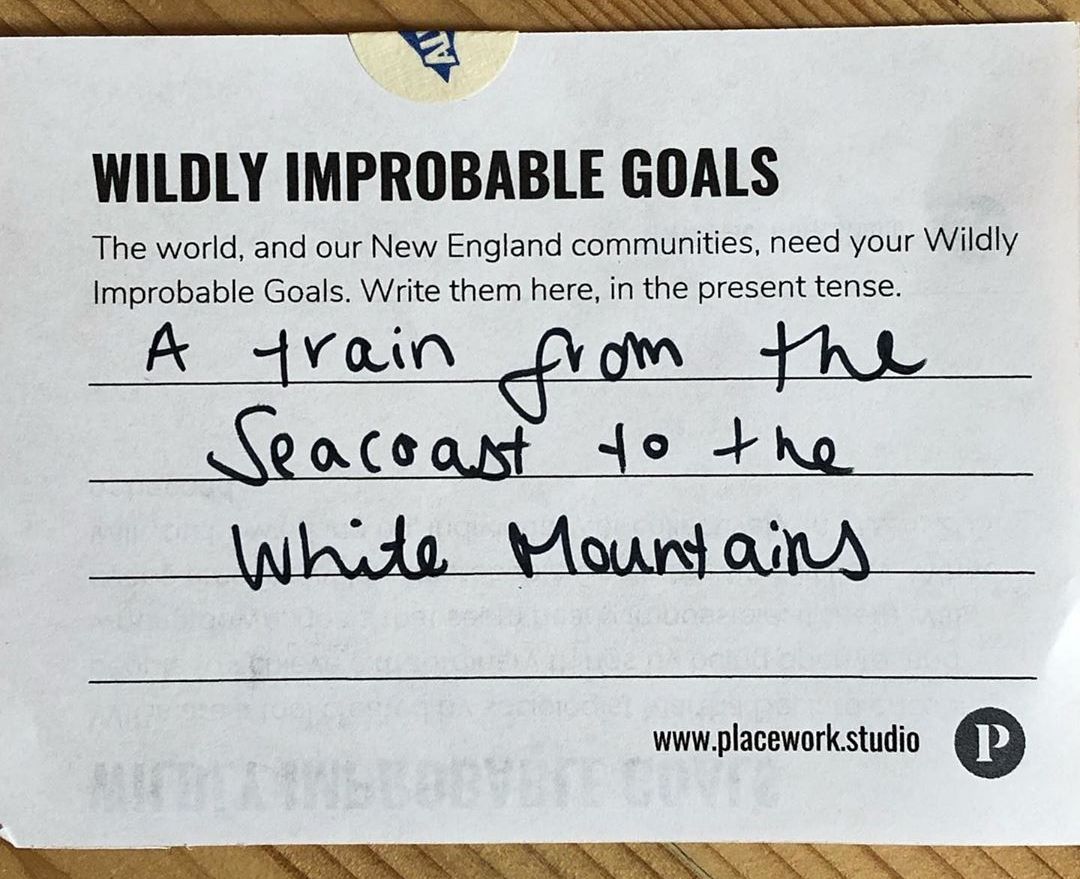 WILDLY IMPROBABLE GOALS
The world, and our New England communities, need your Wildly
Improbable Goals. Write them here, in the present tense.
A train from the
Seacoast to the
White Mountains
www.placework.studio
P